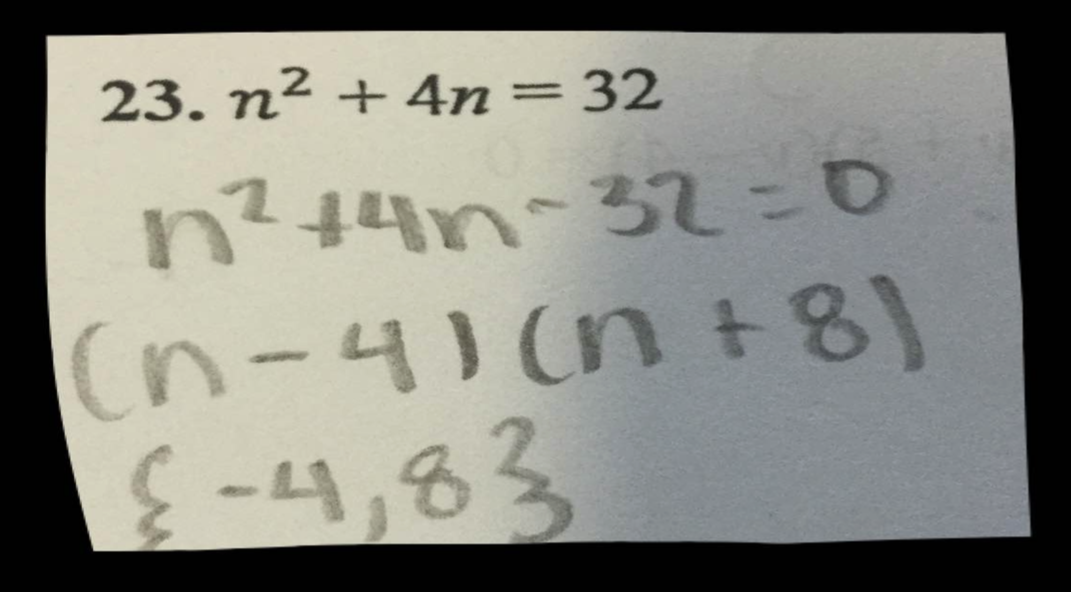 23. n² + 4n = 32
n² + 4n - 32 = 0
(n - 4) (n + 8)
{-4, 8}